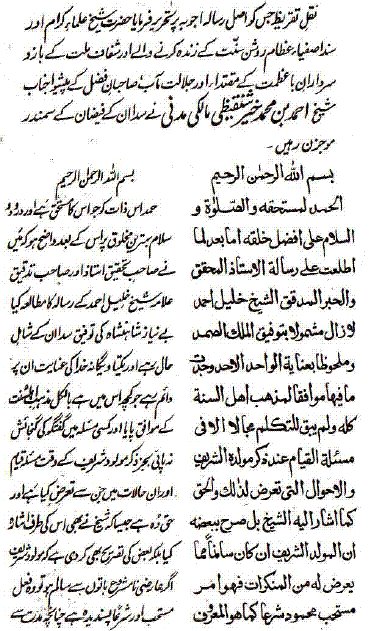 نقل تقریظ جس کو اصل رسالہ اجوبہ پر تحریر فرمایا حضرت شیخ علماء کرام اور
سند اصفیاء عظام روشن سنت کے زندہ کرنے والے اور شفاف ملت کے بازو
سرداران باعظمت کے مقتدا اور جلالت مآب صاحبان فضل کے پیشوا جناب
شیخ احمد بن محمد خیر شنقیطی مالکی مدنی نے سدا ان کے فیضان کے سمندر
موجزن رہیں۔
بسم الله الرحمن الرحيم
الحمد لمستحقه والصلوة و
السلام على افضل خلقه اما بعد لما
اطلعت على رسالة الاستاذ المحقق
والحبر المدقق الشيخ خليل احمد
لازال مشمولا بتوفيق الملك الصمد
وملحوظا بعناية الواحد الاحد وجدت
ما فيها موافقا لمذهب اهل السنة
كله ولم يبق للتكلم مجالا الا في
مسئلة القيام عند ذكر مولدة الشريف
والاحوال التى تعرض لذلك والحق
كما اشار اليه الشيخ بل صرح ببعضه
ان المولد الشريف ان كان سالما مما
يعرض له من المنكرات فهو امر
مستحب محمود شرعا كما هو المعروف
بسم اللہ الرحمن الرحیم
حمد اس ذات کو جو اس کا مستحق ہے اور درود و
سلام بہترین مخلوق پر اس کے بعد واضح ہو کہ میں
نے صاحب تحقیق استاذ اور صاحب تدقیق
علامہ شیخ خلیل احمد کے رسالہ کا مطالعہ کیا
بے نیاز شاہنشاہ کی توفیق سدا ان کے شامل
حال رہے اور یکتا و یگانہ خدا کی عنایت ان پر
دائم رہے جو کچھ اس میں ہے بالکل مذہب اہل سنت
کے موافق پایا اور کسی مسئلہ میں گفتگو کی گنجائش
نہ پائی بجز ذکر مولود شریف کے وقت مسئلہ قیام
اور ان حالات میں جن سے تعرض کیا ہے اور
حق وہ ہے جیسا کہ شیخ نے بھی اس کی طرف اشارہ
کیا بلکہ بعض کی تصریح بھی کر دی ہے کہ مولود شریف
اگر عارضی نامشروع باتوں سے سالم ہو تو وہ فعل
مستحب اور شرعا پسندیدہ ہے چنانچہ مدت سے